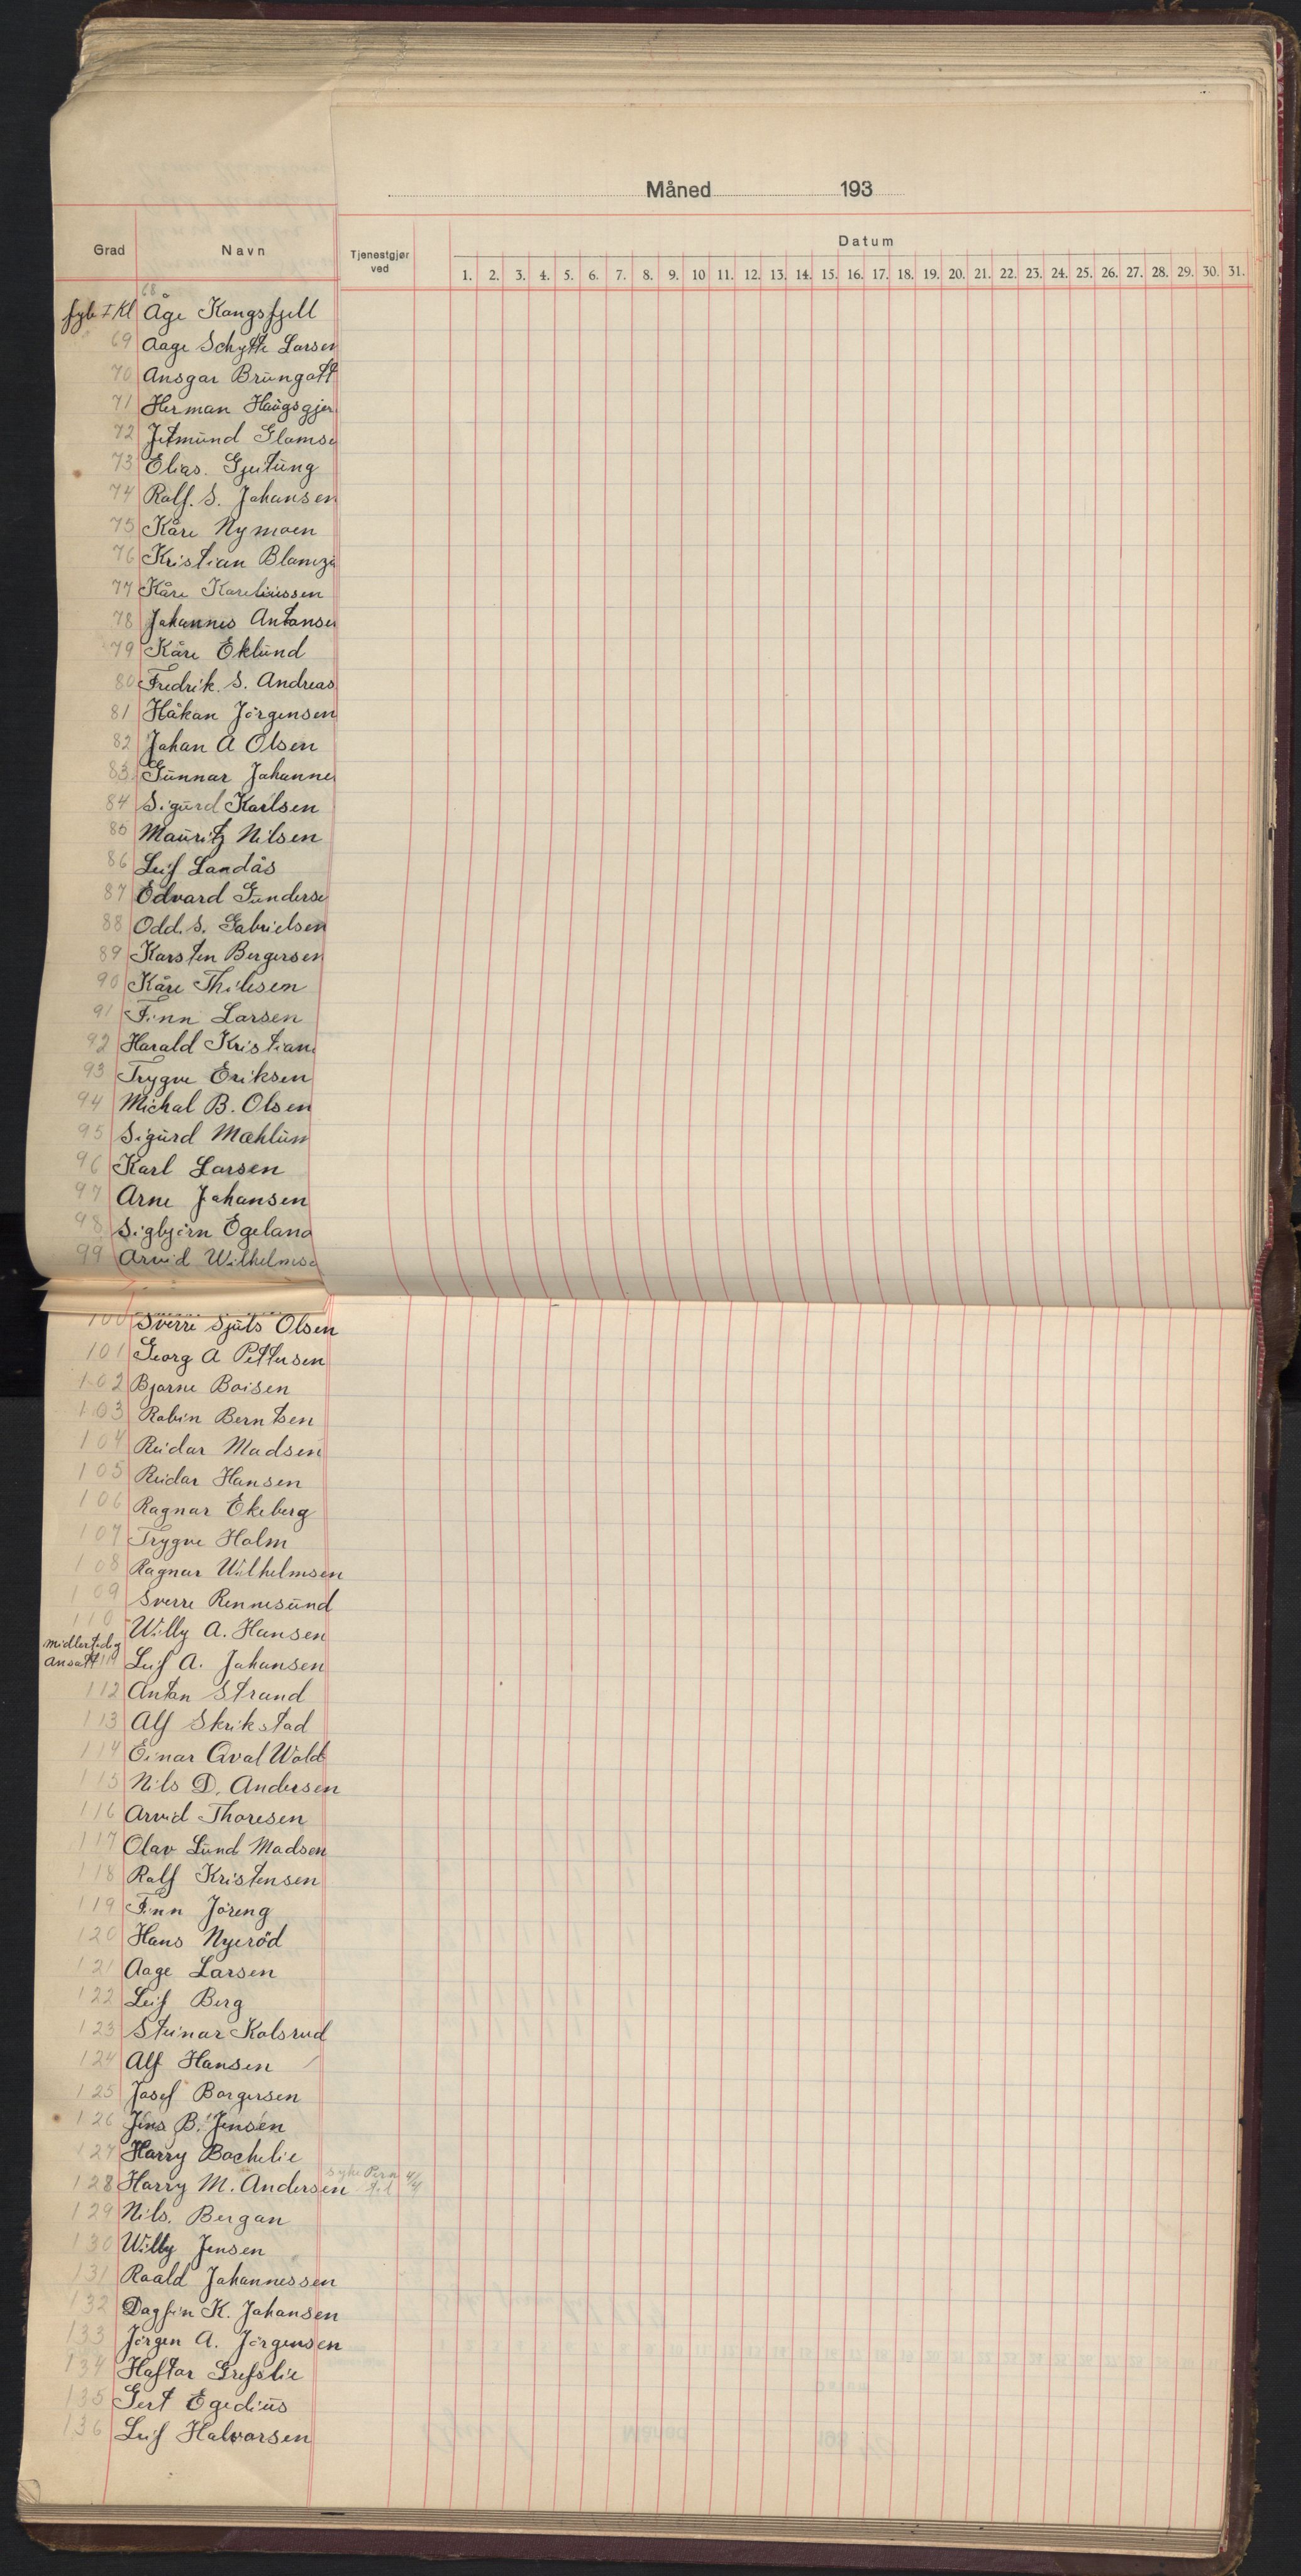 Måned 193
Grad Navn Tjenestgjør ved Datum
1. 2. 3. 4. 5. 6. 7. 8. 9. 10 11. 12. 13. 14. 15. 16. 17. 18. 19. 20. 21. 22. 23. 24. 25. 26. 27. 28. 29. 30. 31.
68
fyb I Kl Åge Kongsfjell
69 Aage Schytte Larsen
70 Ansgar Brungott
71 Herman Haugsgjer
72 Jetmund Glamse
73 Elias. Gjetung
74 Ralf. S. Johansen
75 Kåre Nymoen
76 Kristian
77 Kåre Kareliussen
78 Johannes Antonse
79 Kåre Eklund
80 Fredrik. S. Andreas
81 Håkon Jörgensen
82 Johan A Olsen
83 Gunnar Johanne
84 Sigurd Karlsen
85 Mauritz Nilsen
86 Leif Landås
87 Edvard Gunderse
88 Odd. S. Gabrielsen
89 Karsten Bergersen
90 Kåre Thilesen
91 Finn Larsen
92 Harald Kristian
93 Trygve Eriksen
94 Michal B. Olsen
95 Sigurd Mæhlum
96 Karl Larsen
97 Arne Johansen
98 Sigbjörn Egeland
99 Arvid Wilhelmse
100 Sverre Sjuls Olsen
101 Georg A Pettersen
102 Bjarne Boisen
103 Robin Berntsen
104 Reidar Madsen
105 Reidar Hansen
106 Ragnar Ekeberg
107 Trygve Holm
108 Ragnar Wilhelmsen
109 Sverre Rennesund
110 Willy A. Hansen
midlertidig
ansatt 111 Leif A. Johansen
112 Anton Strand
113 Alf Skrikstad
114 Einar Oval Wold
115 Nils D. Andersen
116 Arvid Thoresen
117 Olav Lund Madsen
118 Ralf Kristensen
119 Finn Jöreng
120 Hans Nyeröd
121 Aage Larsen
122 Leif Berg
123 Steinar Kolsrud
124 Alf Hansen
125 Josef Borgersen
126 Jens B. Jensen
127 Harry Bachelie
128 Harry M. Andersen
129 Nils. Bergan
130 Willy Jensen
131 Roald Johannessen
132 Dagfin K. Johansen
133 Jörgen A. Jörgensen
134 Haftor Grefslie
135 Gert Egedius
136 Leif Halvorsen